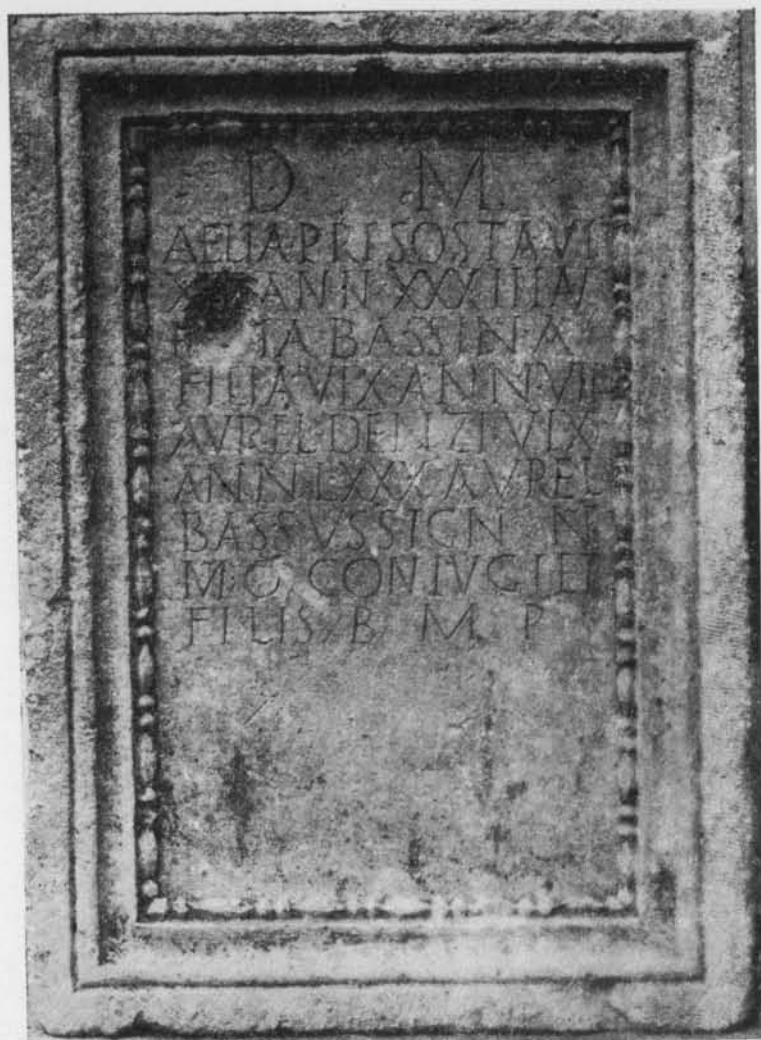 D M
AELIA PRISOSTA VI
ANN XXXIIII
BASSINA
FILIA VIX ANN VII
AVREL DENZI VIX
ANN LXXX AVREL
BASSVS SIGN N
M C CONIVGI ET
FILIS B M P